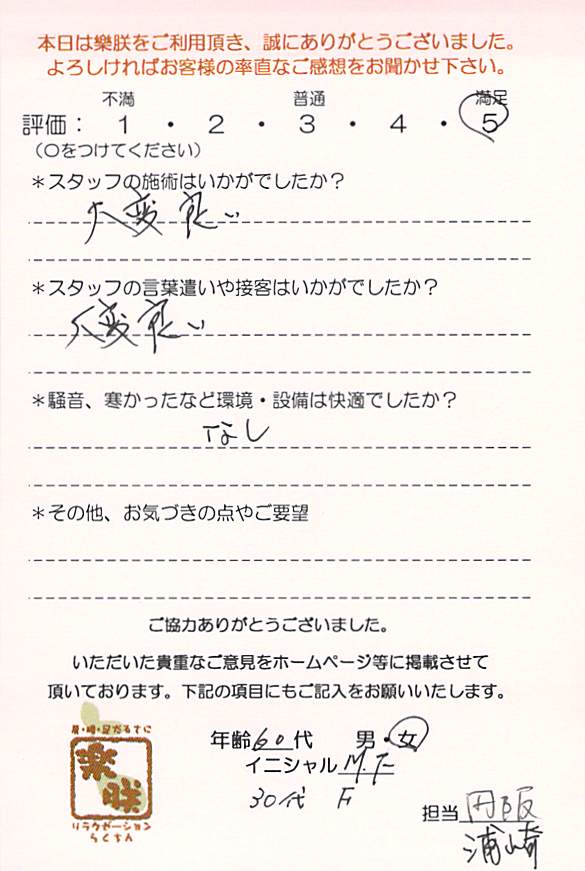 本日は樂朕をご利用頂き、誠にありがとうございました。
よろしければお客様の率直なご感想をお聞かせ下さい。
不満 普通 満足
評価： 1 ・ 2 ・ 3 ・ 4 ・ 5
（○をつけてください）
＊スタッフの施術はいかがでしたか？
大変良い
＊スタッフの言葉遣いや接客はいかがでしたか？
大変良い
＊騒音、寒かったなど環境・設備は快適でしたか？
なし
＊その他、お気づきの点やご要望
ご協力ありがとうございました。
いただいた貴重なご意見をホームページ等に掲載させて
頂いております。下記の項目にもご記入をお願いいたします。
年齢60代 男・女
イニシャル M.F
30代 F
肩・腰・足がるてに
楽朕
リラクゼーション
らくちん
担当 円阪
浦崎